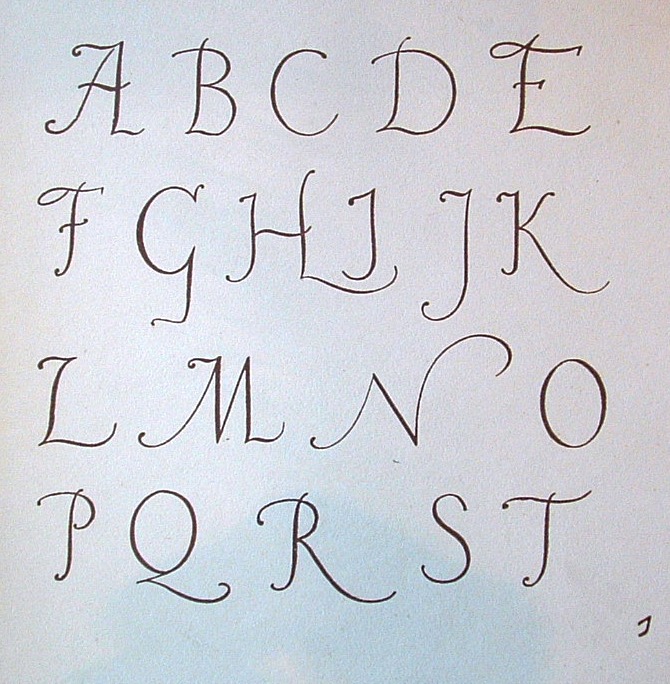 A B C D E
F G H I J K
L M N O
P Q R S T